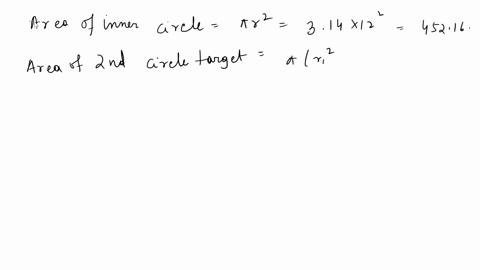 Area of inner circle = πr² = 3.14 × 12² = 452.16.
Area of 2nd circle target = π(r₁²